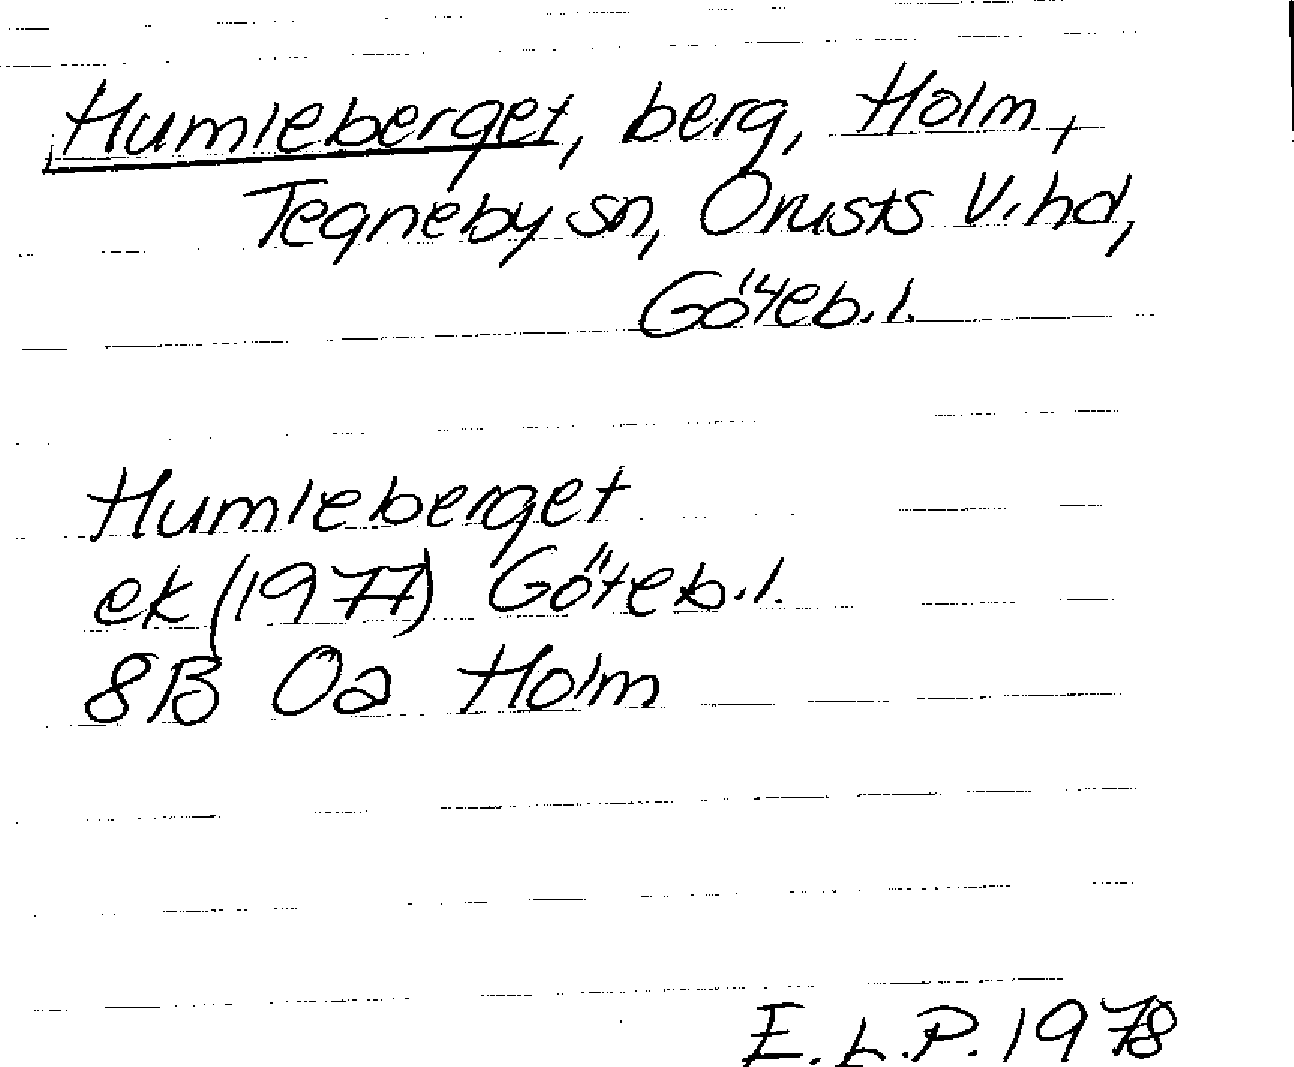 Humleberget, berg, Holm,
Tegneby sn, Orusts V. hd,
Göteb. l.
Humleberget
ek (1977) Göteb. l.
8B 0a Holm
E. L. P. 1978